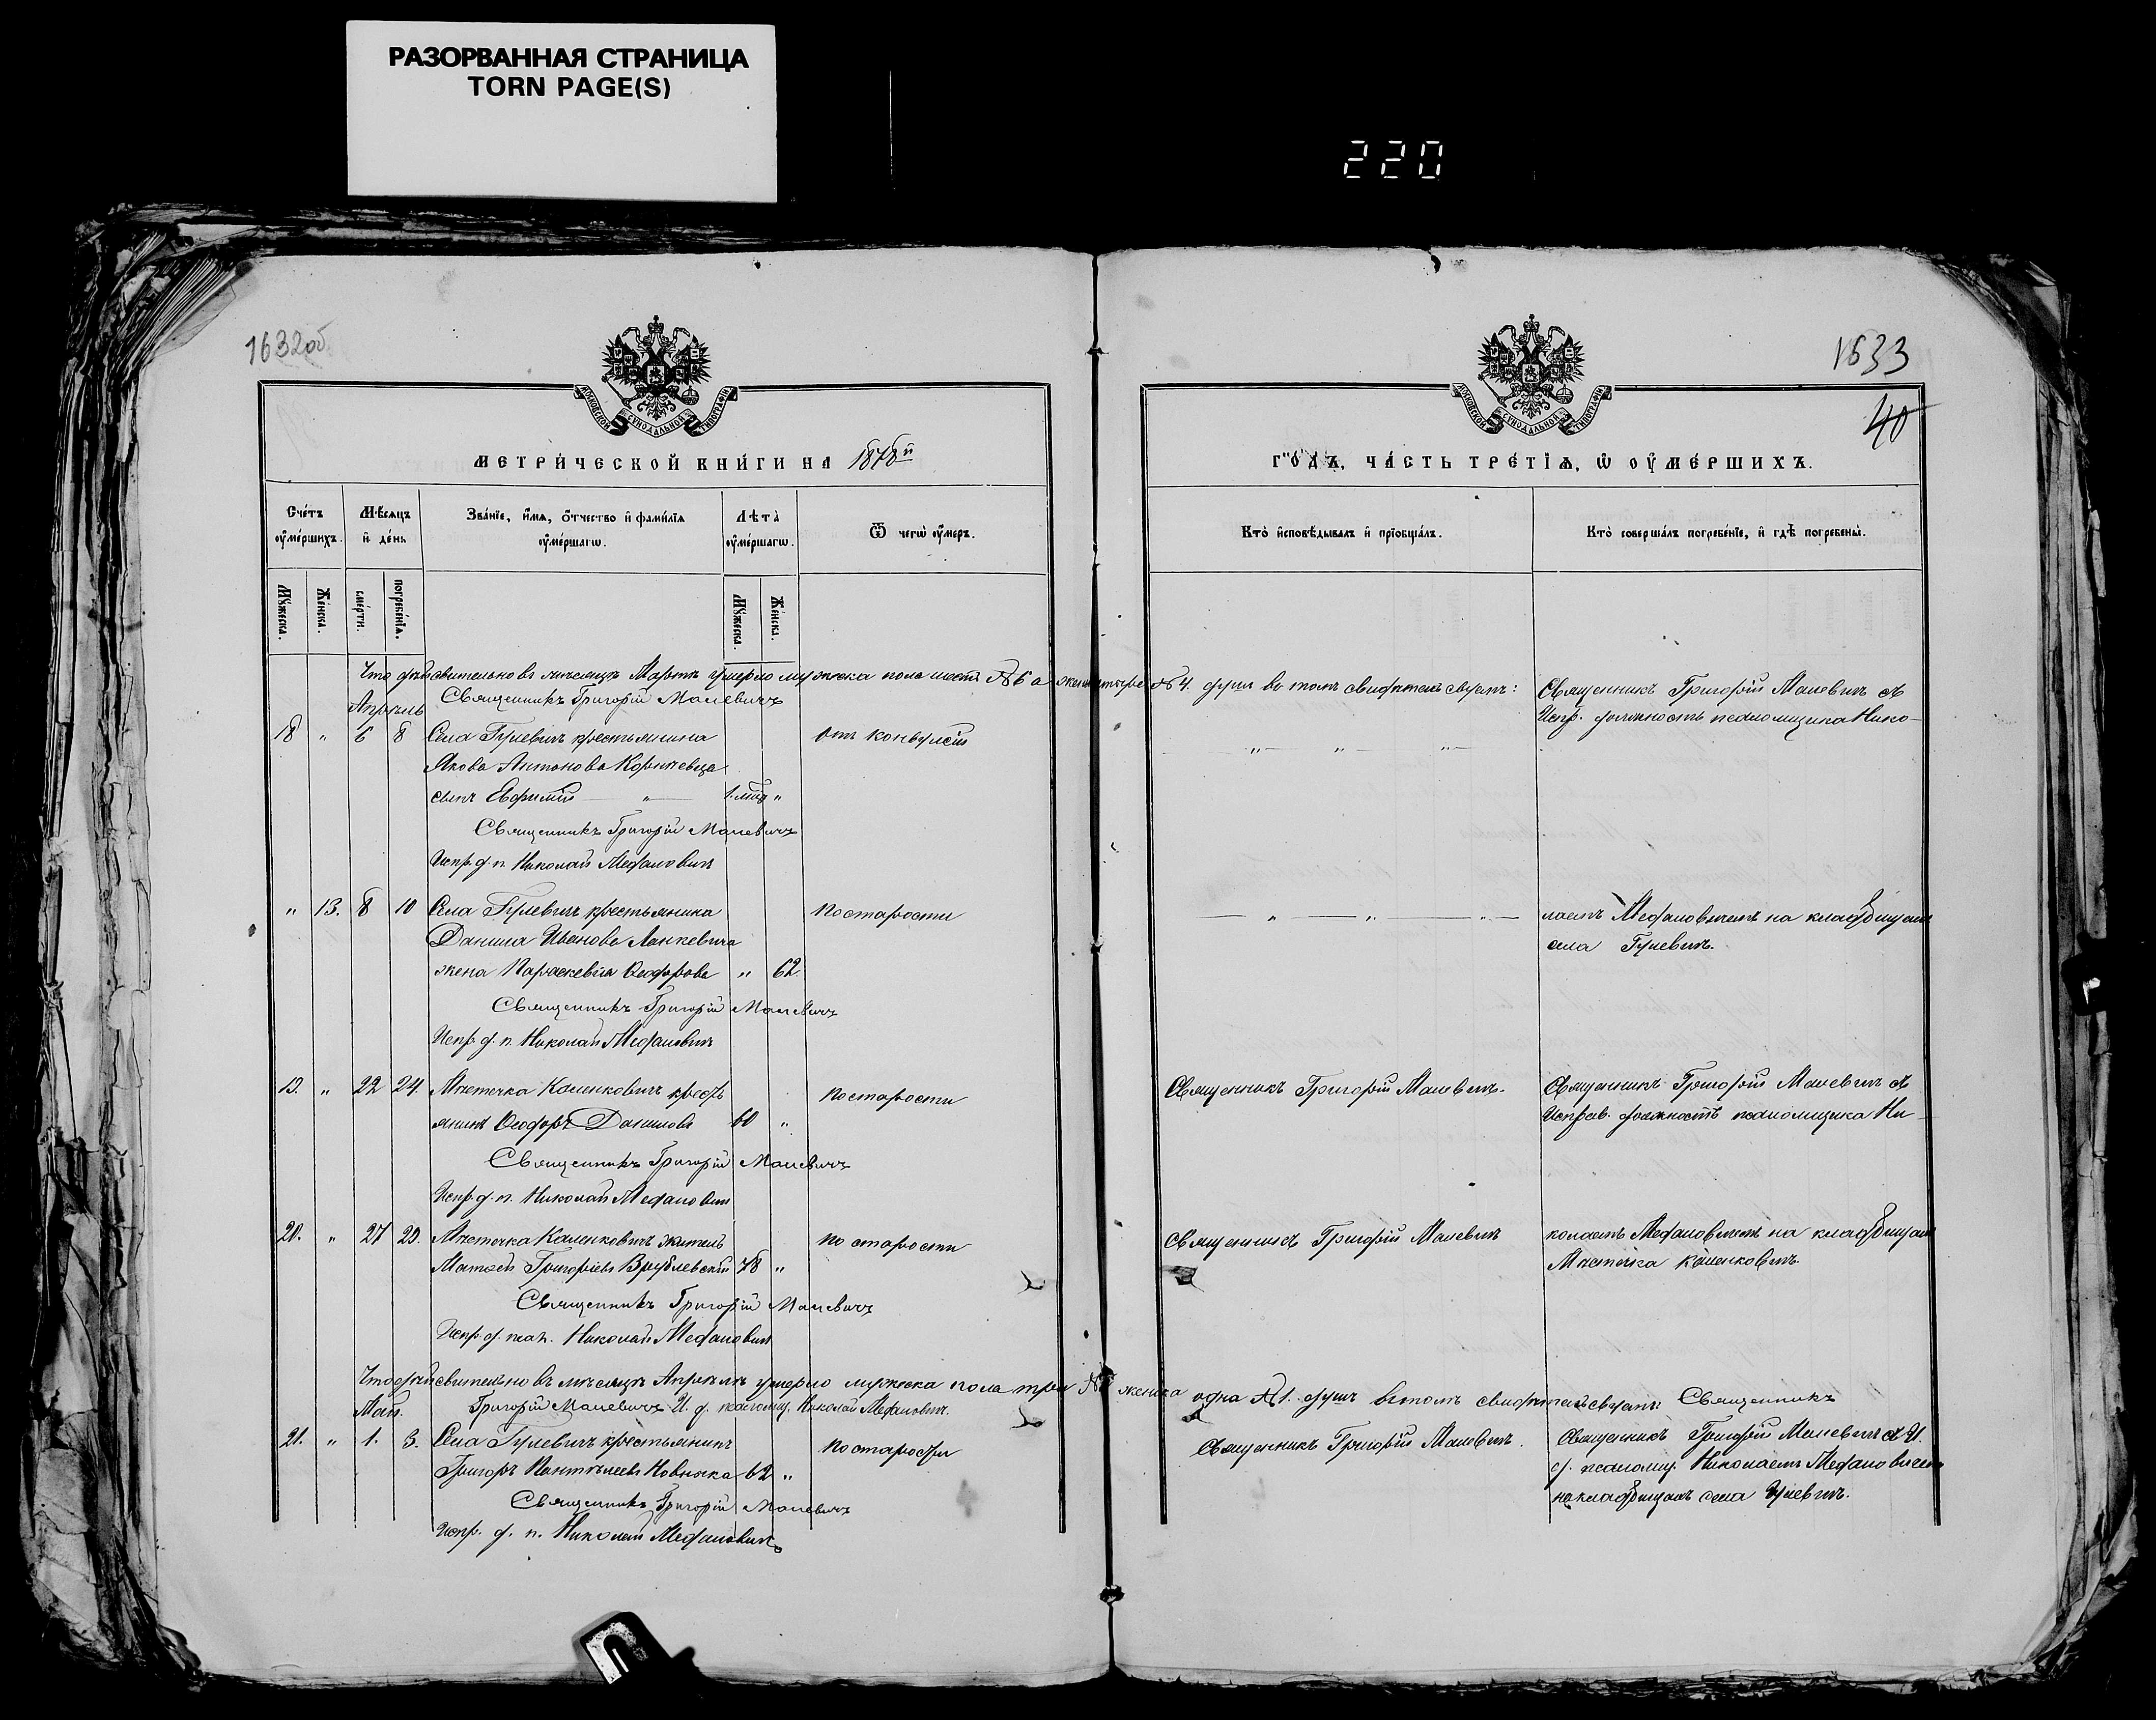 РАЗОРВАННАЯ СТРАНИЦА
TORN PAGE(S)
220
1632об
МОСКОВСКОЙ СУНОДАЛЬНОЙ ТИПОГРАФІИ
МЕТРИ́ЧЕСКОЙ КНИ́ГИ НА 1878й
Сче́тъ оу҆ме́ршихъ.
Мѣ́сяцъ и҆ де́нь
Зва́нїе, и҆́мѧ, ѻ҆́тчество и҆ фами́лїѧ оу҆ме́ршагѡ.
Лѣта̀ оу҆ме́ршагѡ.
Ѿ чегѡ̀ оу҆́меръ.
Мꙋ́жеска.
Же́нска.
сме́рти.
погребе́нїѧ.
Мꙋ́жеска.
Же́нска.
Что действительно въ мѣсяцѣ Мартѣ умерло мужеска пола шесть № 6 а женска четыре № 4. душъ въ томъ свидѣтельствуемъ:
Священникъ Григорій Малевичъ
Апрѣль
18 " 6 8 Села Гулевичъ крестьянина
Якова Антонова Корнѣевца
сынъ Евфимій " 1. мѣс "
От конвульсіи
Священникъ Григорій Малевичъ
Испр. д. п. Николай Мефановичъ
" 13. 8 10 Села Гулевичъ крестьянина
Данила Иванова Ланкевича
жена Параскевія Ѳеодорова " 62.
По старости
Священникъ Григорій Малевичъ
Испр. д. п. Николай Мефановичъ
19. " 22 24. Мѣстечка Каленковичъ кресть
янинъ Ѳеодоръ Даниловъ 60 "
По старости
Священникъ Григорій Малевичъ
Испр. д. п. Николай Мефановичъ
20. " 27 29. Мѣстечка Каленковичъ житель
Матѳей Григоріевъ Врублевскій 78 "
По старости
Священникъ Григорій Малевичъ
Испр. д. псал. Николай Мефановичъ
Что действительно въ мѣсяцѣ Апрѣлѣ умерло мужеска пола три № 3 женска одна № 1. душъ въ томъ свидѣтельствуемъ: Священникъ
Григорій Малевичъ И. д. псаломщ. Николай Мефановичъ.
Май.
21. " 1. 3. Села Гулевичъ крестьянинъ
Григоръ Пантелеевъ Новнюка 62 "
По старости
Священникъ Григорій Малевичъ
Испр. д. п. Николай Мефановичъ
1633
40
МОСКОВСКОЙ СУНОДАЛЬНОЙ ТИПОГРАФІИ
ГО́ДЪ, ЧА́СТЬ ТРЕ́ТЇѦ, Ѡ҆ ОУ҆МЕ́РШИХЪ.
Кто̀ и҆сповѣ́дывалъ и҆ прїобща́лъ.
Кто̀ соверша́лъ погребе́нїе, и҆ гдѣ̀ погребены̀.
Священникъ Григорій Малевичъ съ
Испр. должность псаломщика Нико-
" " "
" " "
лаемъ Мефановичемъ на кладбищахъ
села Гулевичъ.
Священникъ Григорій Малевичъ.
Священникъ Григорій Малевичъ съ
Исправ. должность псаломщика Ни-
Священникъ Григорій Малевичъ
колаемъ Мефановичемъ на кладбищахъ
Мѣстечка Каленковичъ.
Священникъ Григорій Малевичъ.
Священникъ Григорій Малевичъ съ И.
д. псаломщ. Николаемъ Мефановичемъ
на кладбищахъ села Гулевичъ.